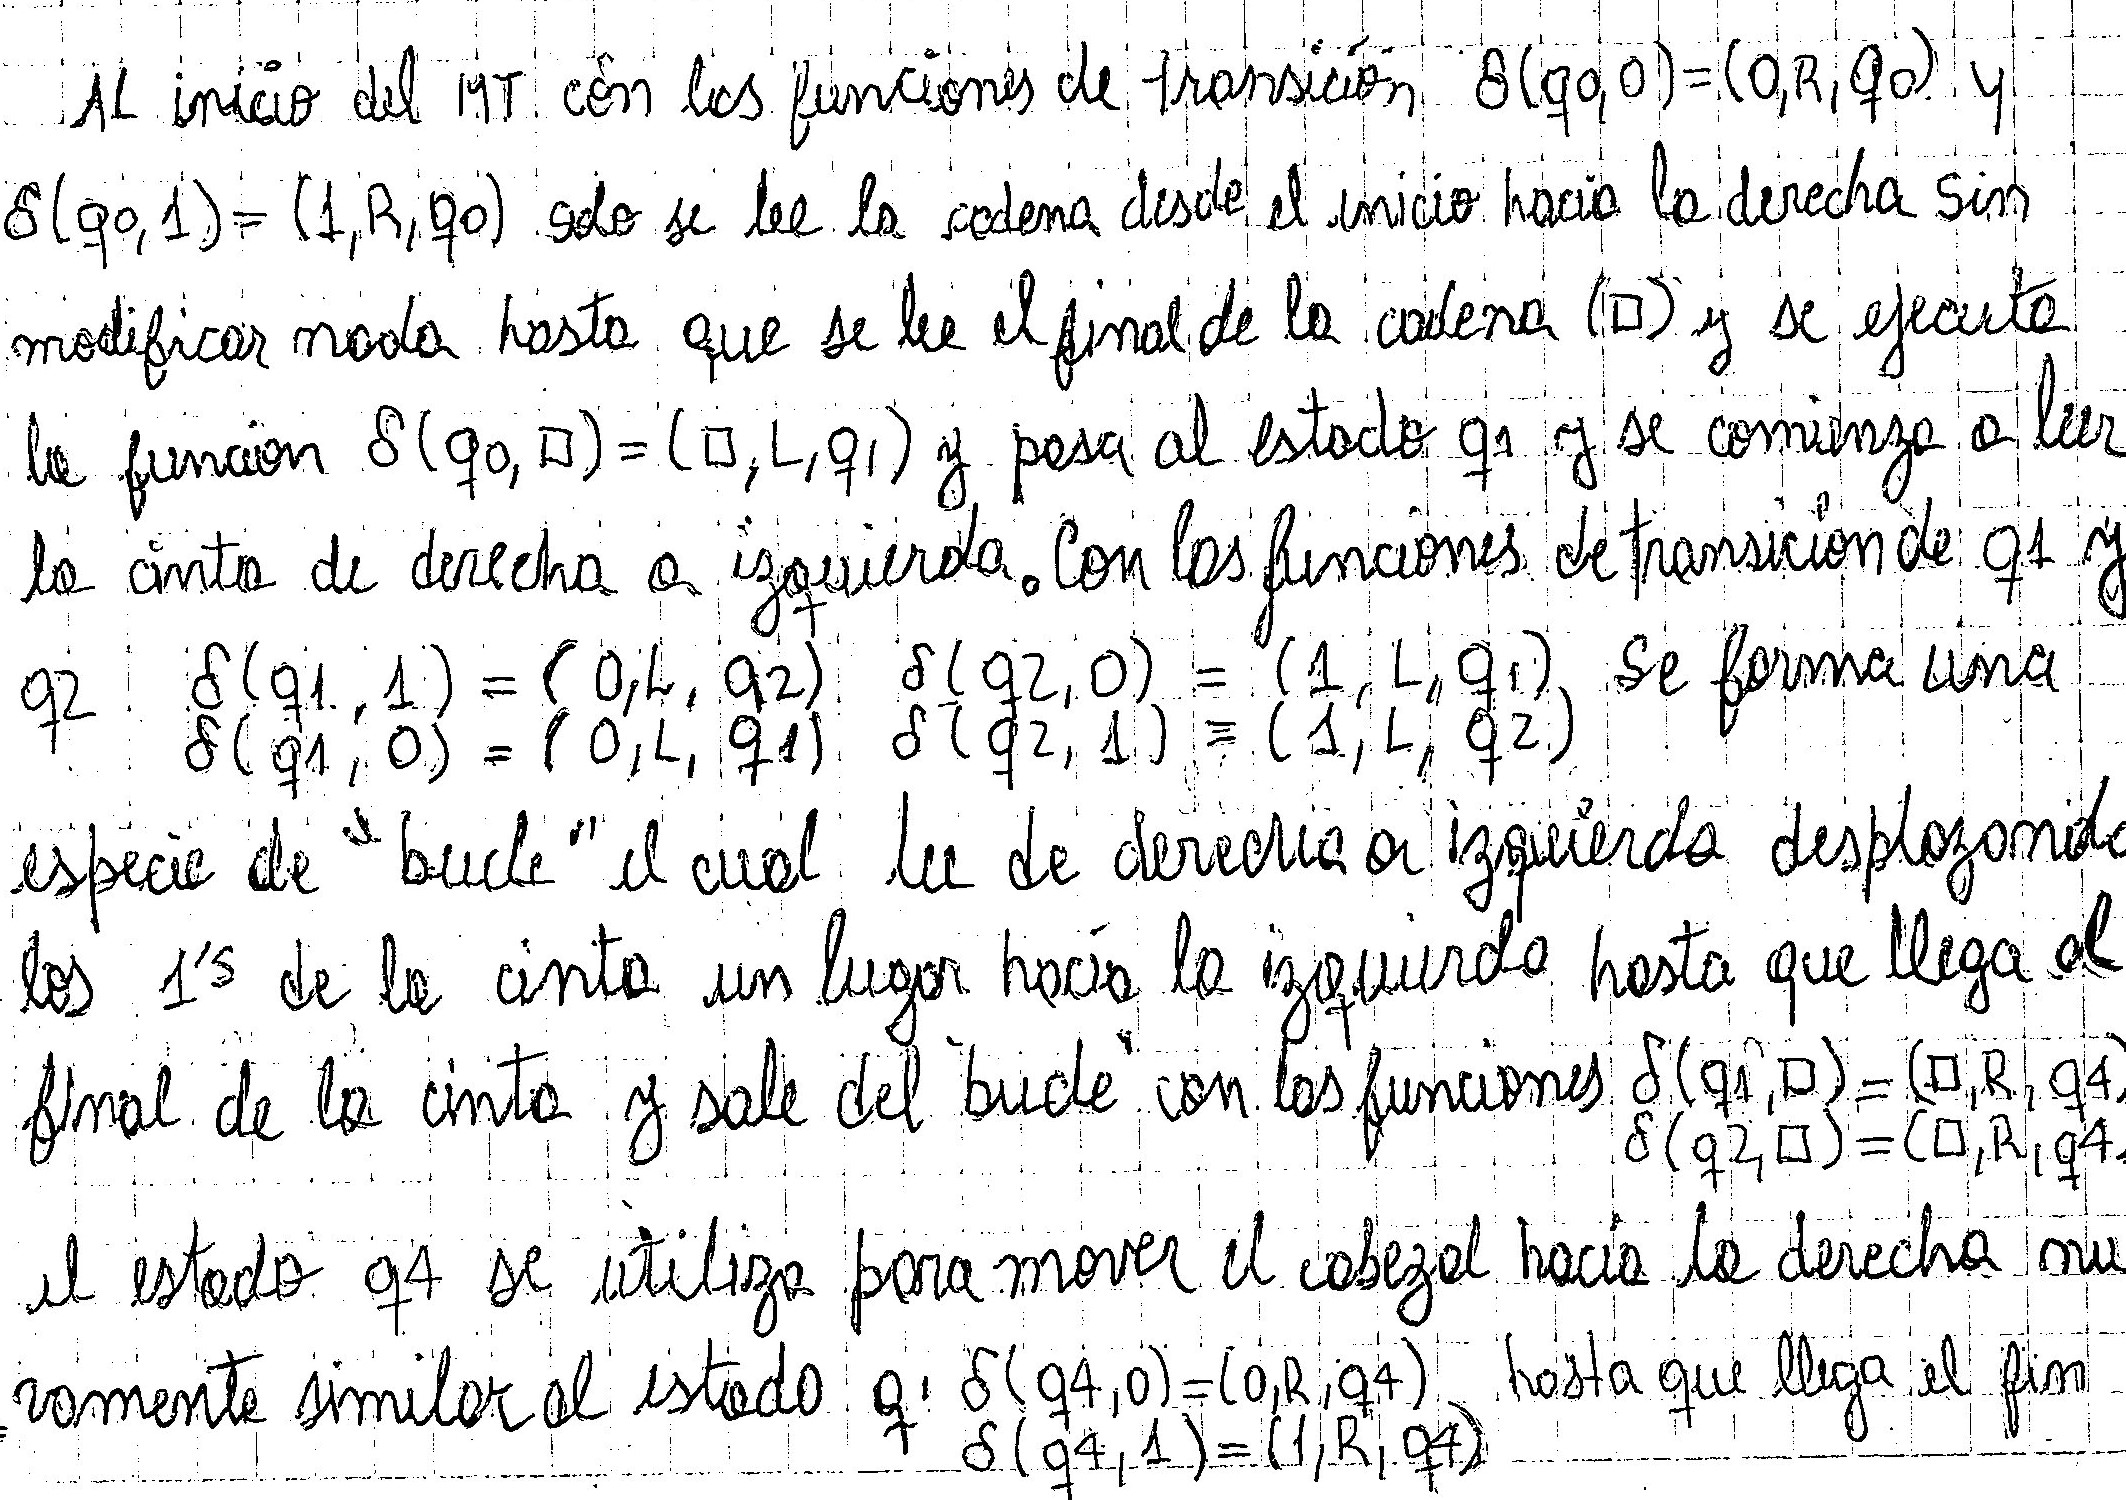 AL inicio del MT con las funciones de transición δ(q0,0)=(0,R,q0) y
δ(q0,1)=(1,R,q0) solo se lee la cadena desde el inicio hacia la derecha sin
modificar nada hasta que se lee el final de la cadena (□) y se ejecuta
la funcion δ(q0,□)=(□,L,q1) y pasa al estado q1 y se comienza a leer
la cinta de derecha a izquierda. Con las funciones de transición de q1 y
q2 δ(q1,1)=(0,L,q2) δ(q2,0)=(1,L,q1) se forma una
δ(q1,0)=(0,L,q1) δ(q2,1)=(1,L,q2)
especie de "bucle" el cual lee de derecha a izquierda desplazando
los 1's de la cinta un lugar hacia la izquierda hasta que llega al
final de la cinta y sale del "bucle" con las funciones δ(q1,□)=(□,R,q4)
δ(q2,□)=(□,R,q4)
el estado q4 se utiliza para mover el cabezal hacia la derecha nu
vamente similar al estado q1 δ(q4,0)=(0,R,q4) hasta que llega el fin
δ(q4,1)=(1,R,q4)